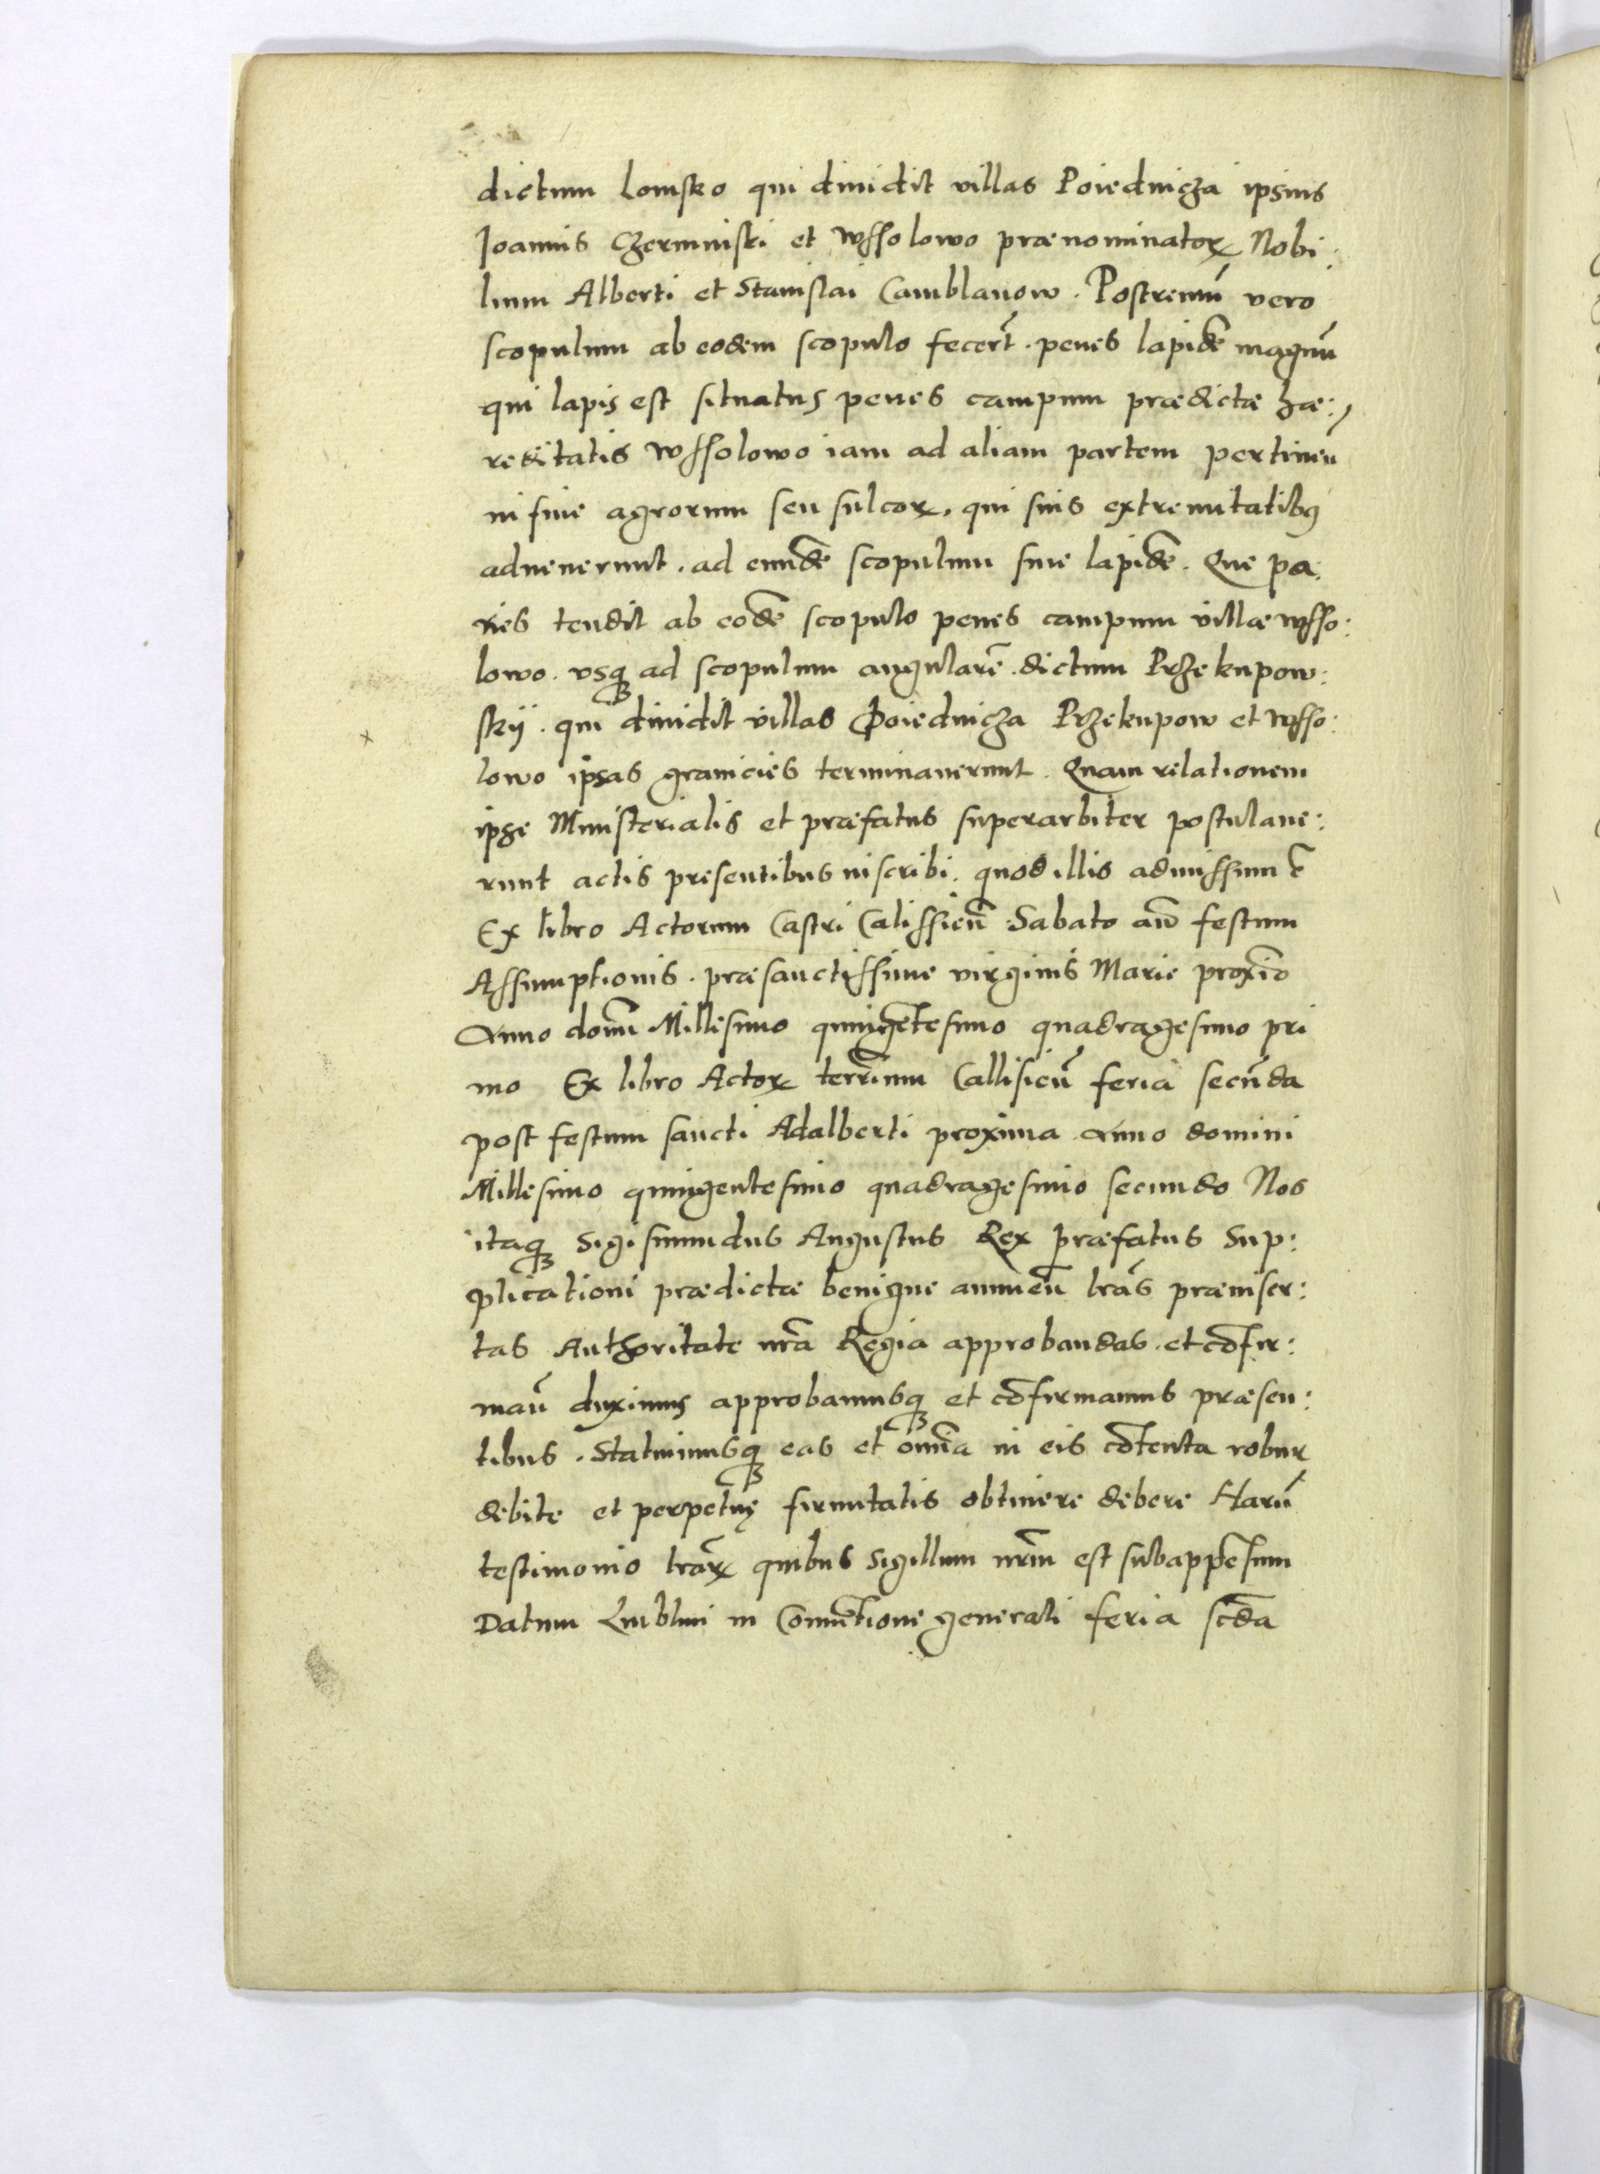 dictum Lomsko qui diuidit villas Poiednicza ipsius
Joannis Czerminski et Wssolowo prænominatoꝝ Nobi:
lium Alberti et Stanislai Camblanow. Postremū vero
scopulum ab eodem scopulo fecert̄. penes lapidē magnū
qui lapis est situatus penes campum prædictæ hæ:
reditatis Wssolowo iam ad aliam partem pertineñ
in fine agrorum seu sulcoꝝ, qui suis extremitatibꝰ
aduenerunt. ad eundē scopulum siue lapidē. Que pa
ries tendit ab eodē scopulo penes campum villæ Wsso:
lowo. vsqꝫ ad scopulum angularē. dictum Przekupow:
skij. qui diuidit villas Poiednicza Przekupow et Wsso:
lowo ipsas granicies terminauerunt. Quam relationem
ipse Ministerialis et præfatus superarbiter postulaue:
runt actis presentibus inscribi. quod illis admissum ē
Ex libro Actorum Castri Calissieñ Sabato añ festum
Assumptionis. præsanctissime virginis Marie proxīo
Anno domī Millesimo quingētesimo quadragesimo pri
mo Ex libro Actoꝝ terrīum Callisieñ feria secūda
post festum sancti Adalberti proxima Anno domini
Millesimo quingentesimo quadragesimo secundo Nos
itaqꝫ Sigismundus Augustus Rex præfatus Sup:
plicationi prædictæ benigne annueñ lrās præinser:
tas Authoritate nrā Regia approbandas. et cōfir:
mañ duximus approbamusqꝫ et cōfirmamus præsen:
tibus. Statuimusqꝫ eas et omīa in eis cōtenta robur
debite et perpetuę firmitatis obtinere debere Harū
testimonio lrāꝝ quibus sigillum nr̄m est subappēsum
Datum Lublini in Conuētione generali feria scd̄a